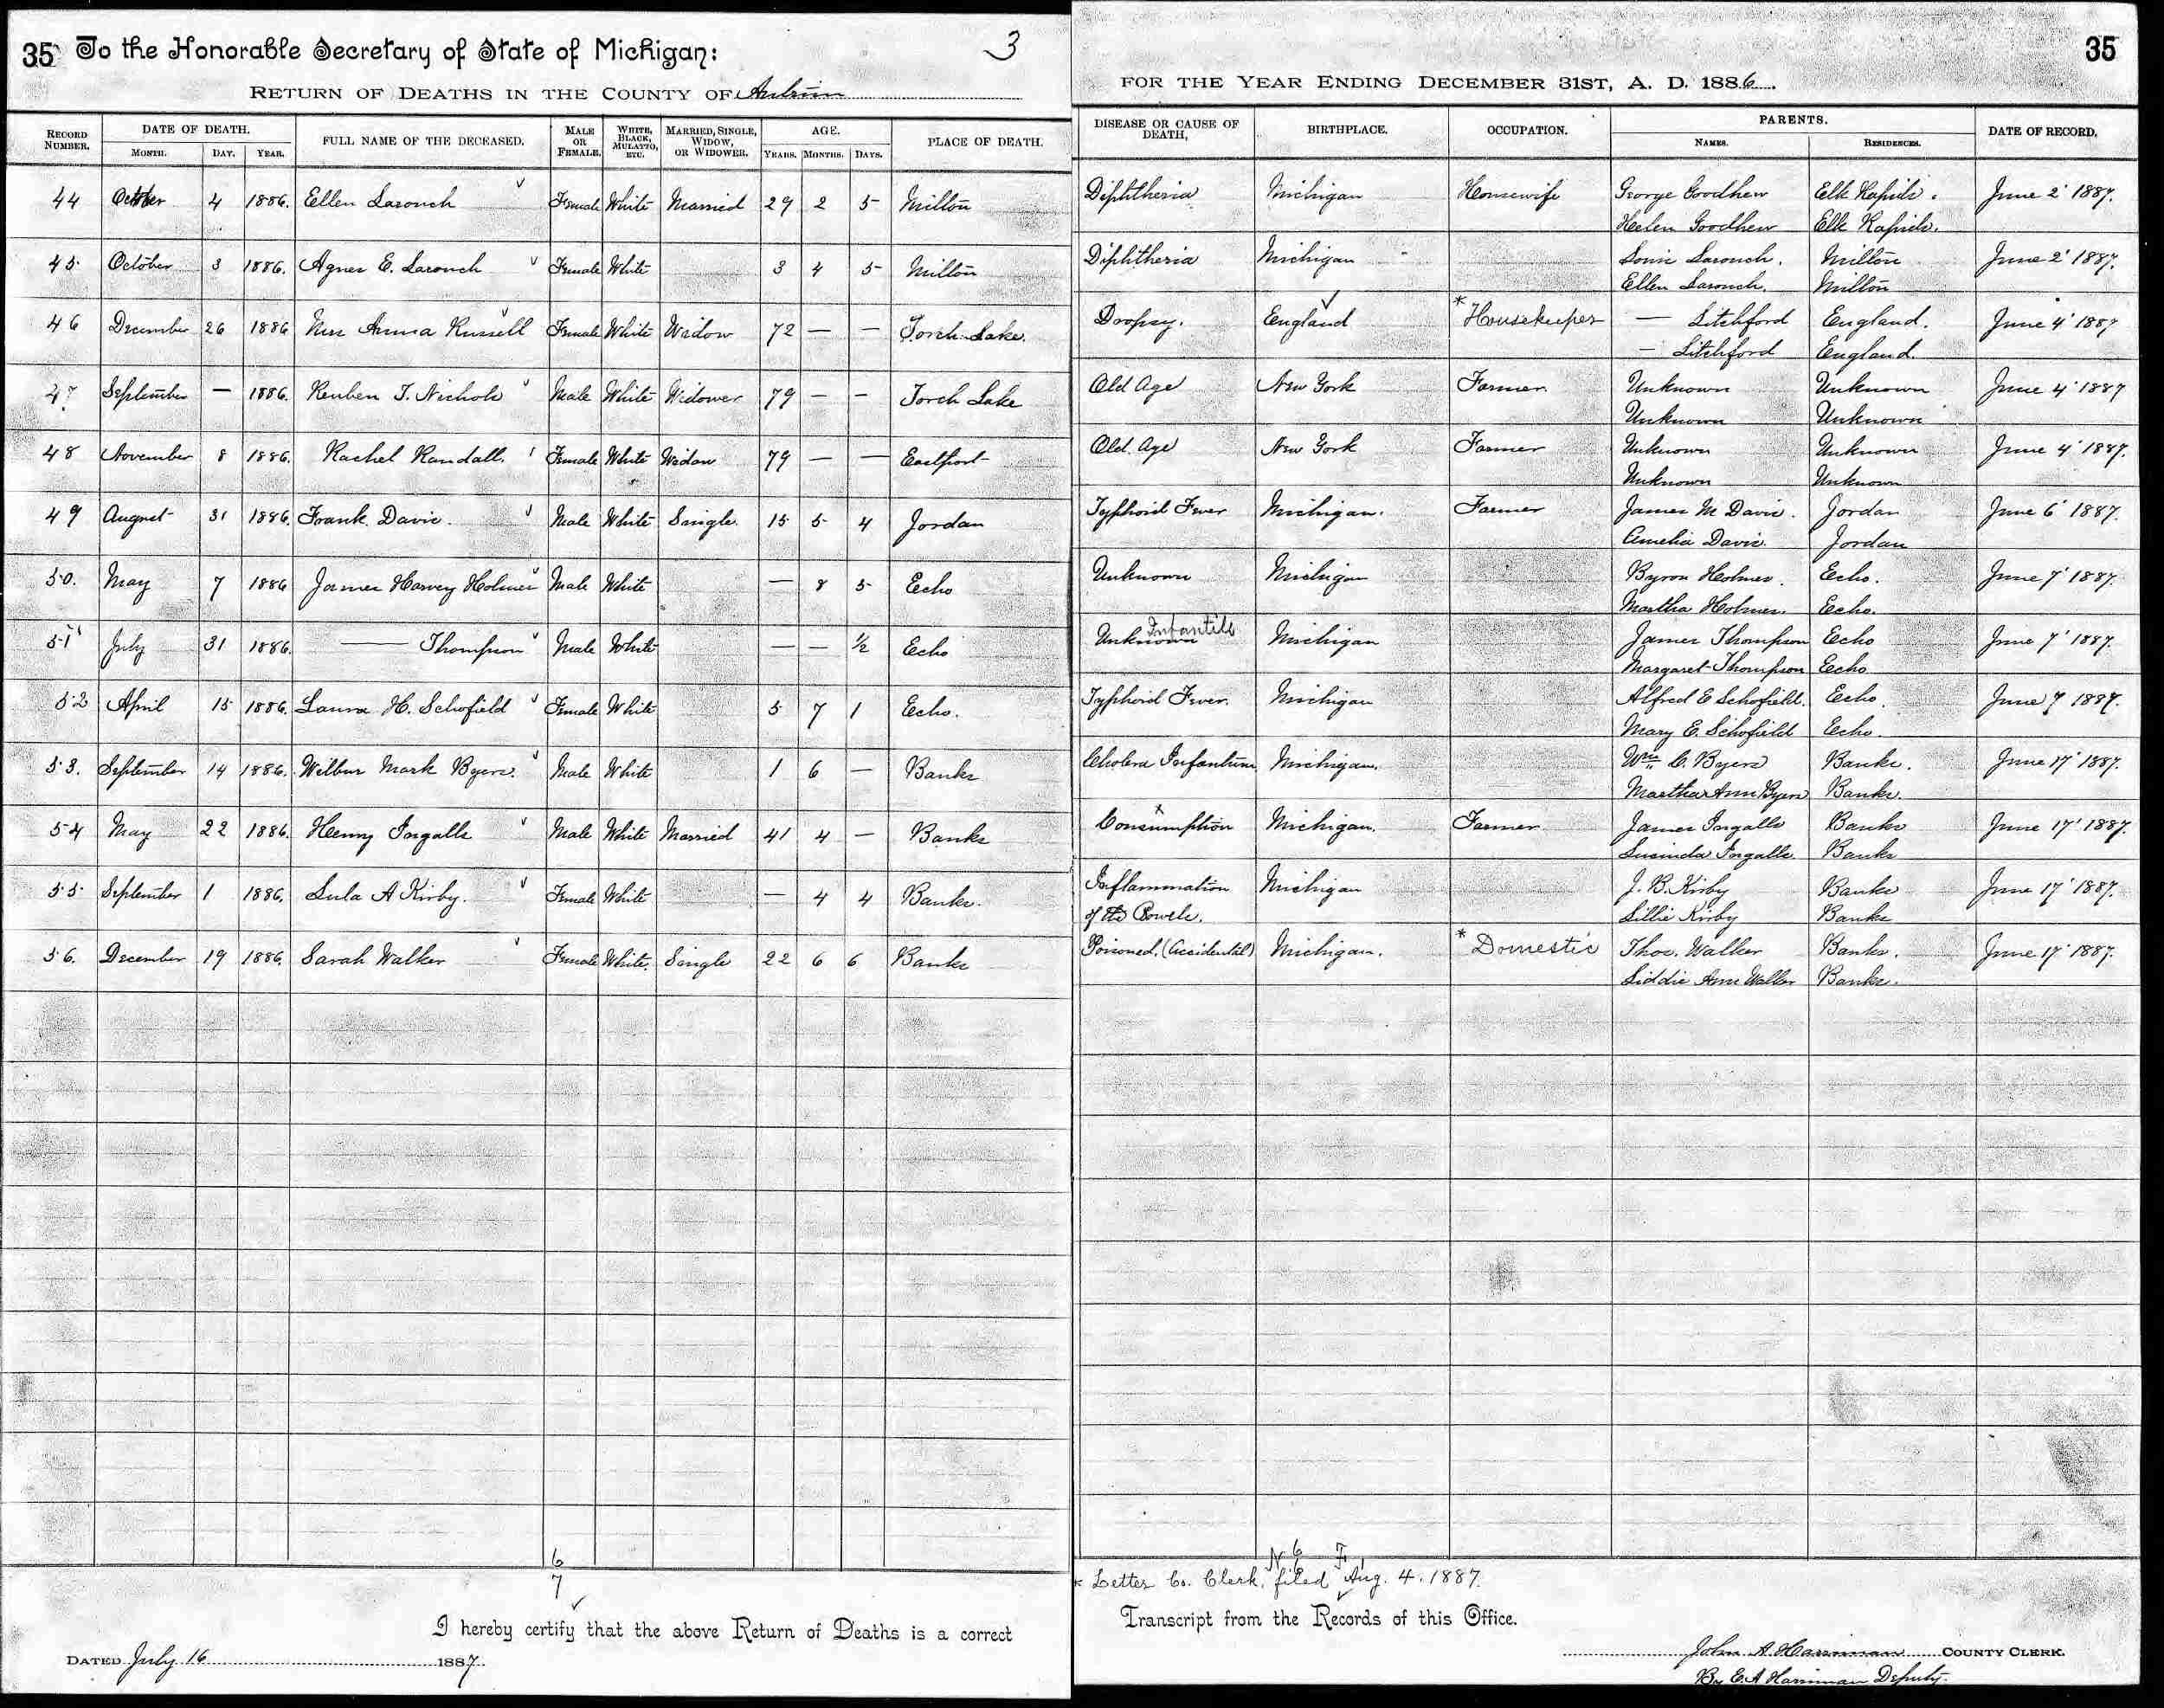 35 To the Honorable Secretary of State of Michigan: 3
RETURN OF DEATHS IN THE COUNTY OF Antrim
RECORD NUMBER. DATE OF DEATH. MONTH. DAY. YEAR. FULL NAME OF THE DECEASED. MALE OR FEMALE. WHITE, BLACK, MULATTO, ETC. MARRIED, SINGLE, WIDOW, OR WIDOWER. AGE. YEARS. MONTHS. DAYS. PLACE OF DEATH.
44 October 4 1886. Ellen Larouch Female White Married 29 2 5 Milton
45 October 3 1886. Agnes E. Larouch Female White 3 4 5 Milton
46 December 26 1886 Mrs Anna Russell Female White Widow 72 — — Torch Lake.
47 September — 1886. Reuben T. Nichols Male White Widower 79 — — Torch Lake
48 November 8 1886. Rachel Randall. Female White Widow 79 — — Eastport
49 August 31 1886. Frank Davis. Male White Single. 15 5 4 Jordan
50. May 7 1886 James Harvey Holmes Male White — 8 5 Echo
51 July 31 1886. — Thompson Male White — — ½ Echo
52 April 15 1886. Laura H. Schofield Female White 5 7 1 Echo.
53. September 14 1886. Wilbur Mark Byers. Male White 1 6 — Banks
54 May 22 1886. Henry Ingalls Male White Married 41 4 — Banks
55 September 1 1886. Lula A Kirby. Female White — 4 4 Banks.
56. December 19 1886. Sarah Walker Female White. Single 22 6 6 Banks
6
7
I hereby certify that the above Return of Deaths is a correct
DATED July 16 1887.
35
FOR THE YEAR ENDING DECEMBER 31ST, A. D. 1886.
DISEASE OR CAUSE OF DEATH, BIRTHPLACE. OCCUPATION. PARENTS. NAMES. RESIDENCES. DATE OF RECORD.
Diphtheria Michigan Housewife George Goodhew Elk Rapids. June 2 1887.
Helen Goodhew Elk Rapids.
Diphtheria Michigan Louis Larouch. Milton June 2 1887.
Ellen Larouch. Milton
Dropsy. England * Housekeeper — Litchford England. June 4 1887
— Litchford England.
Old Age New York Farmer. Unknown Unknown June 4 1887
Unknown Unknown
Old Age New York Farmer Unknown Unknown June 4 1887.
Unknown Unknown
Typhoid Fever Michigan. Farmer James M Davis. Jordan June 6 1887.
Amelia Davis. Jordan
Unknown Michigan Byron Holmes. Echo. June 7 1887.
Martha Holmes. Echo.
Unknown Infantile Michigan James Thompson Echo June 7 1887.
Margaret Thompson Echo
Typhoid Fever. Michigan Alfred E Schofield. Echo. June 7 1887.
Mary E. Schofield Echo.
Cholera Infantum Michigan. Wm C. Byers Banks. June 17 1887.
Martha Ann Byers Banks.
Consumption Michigan. Farmer James Ingalls Banks June 17 1887.
Lucinda Ingalls. Banks
Inflammation Michigan J. B. Kirby Banks June 17 1887.
of the Bowels. Lillie Kirby Banks
Poisoned. (Accidental) Michigan. * Domestic Thos. Walker Banks. June 17 1887.
Liddie Ann Walker Banks.
N 6 F 1
* Letter Co. Clerk, filed Aug. 4. 1887.
Transcript from the Records of this Office.
John A. Harriman COUNTY CLERK.
By E. A Harriman Deputy.